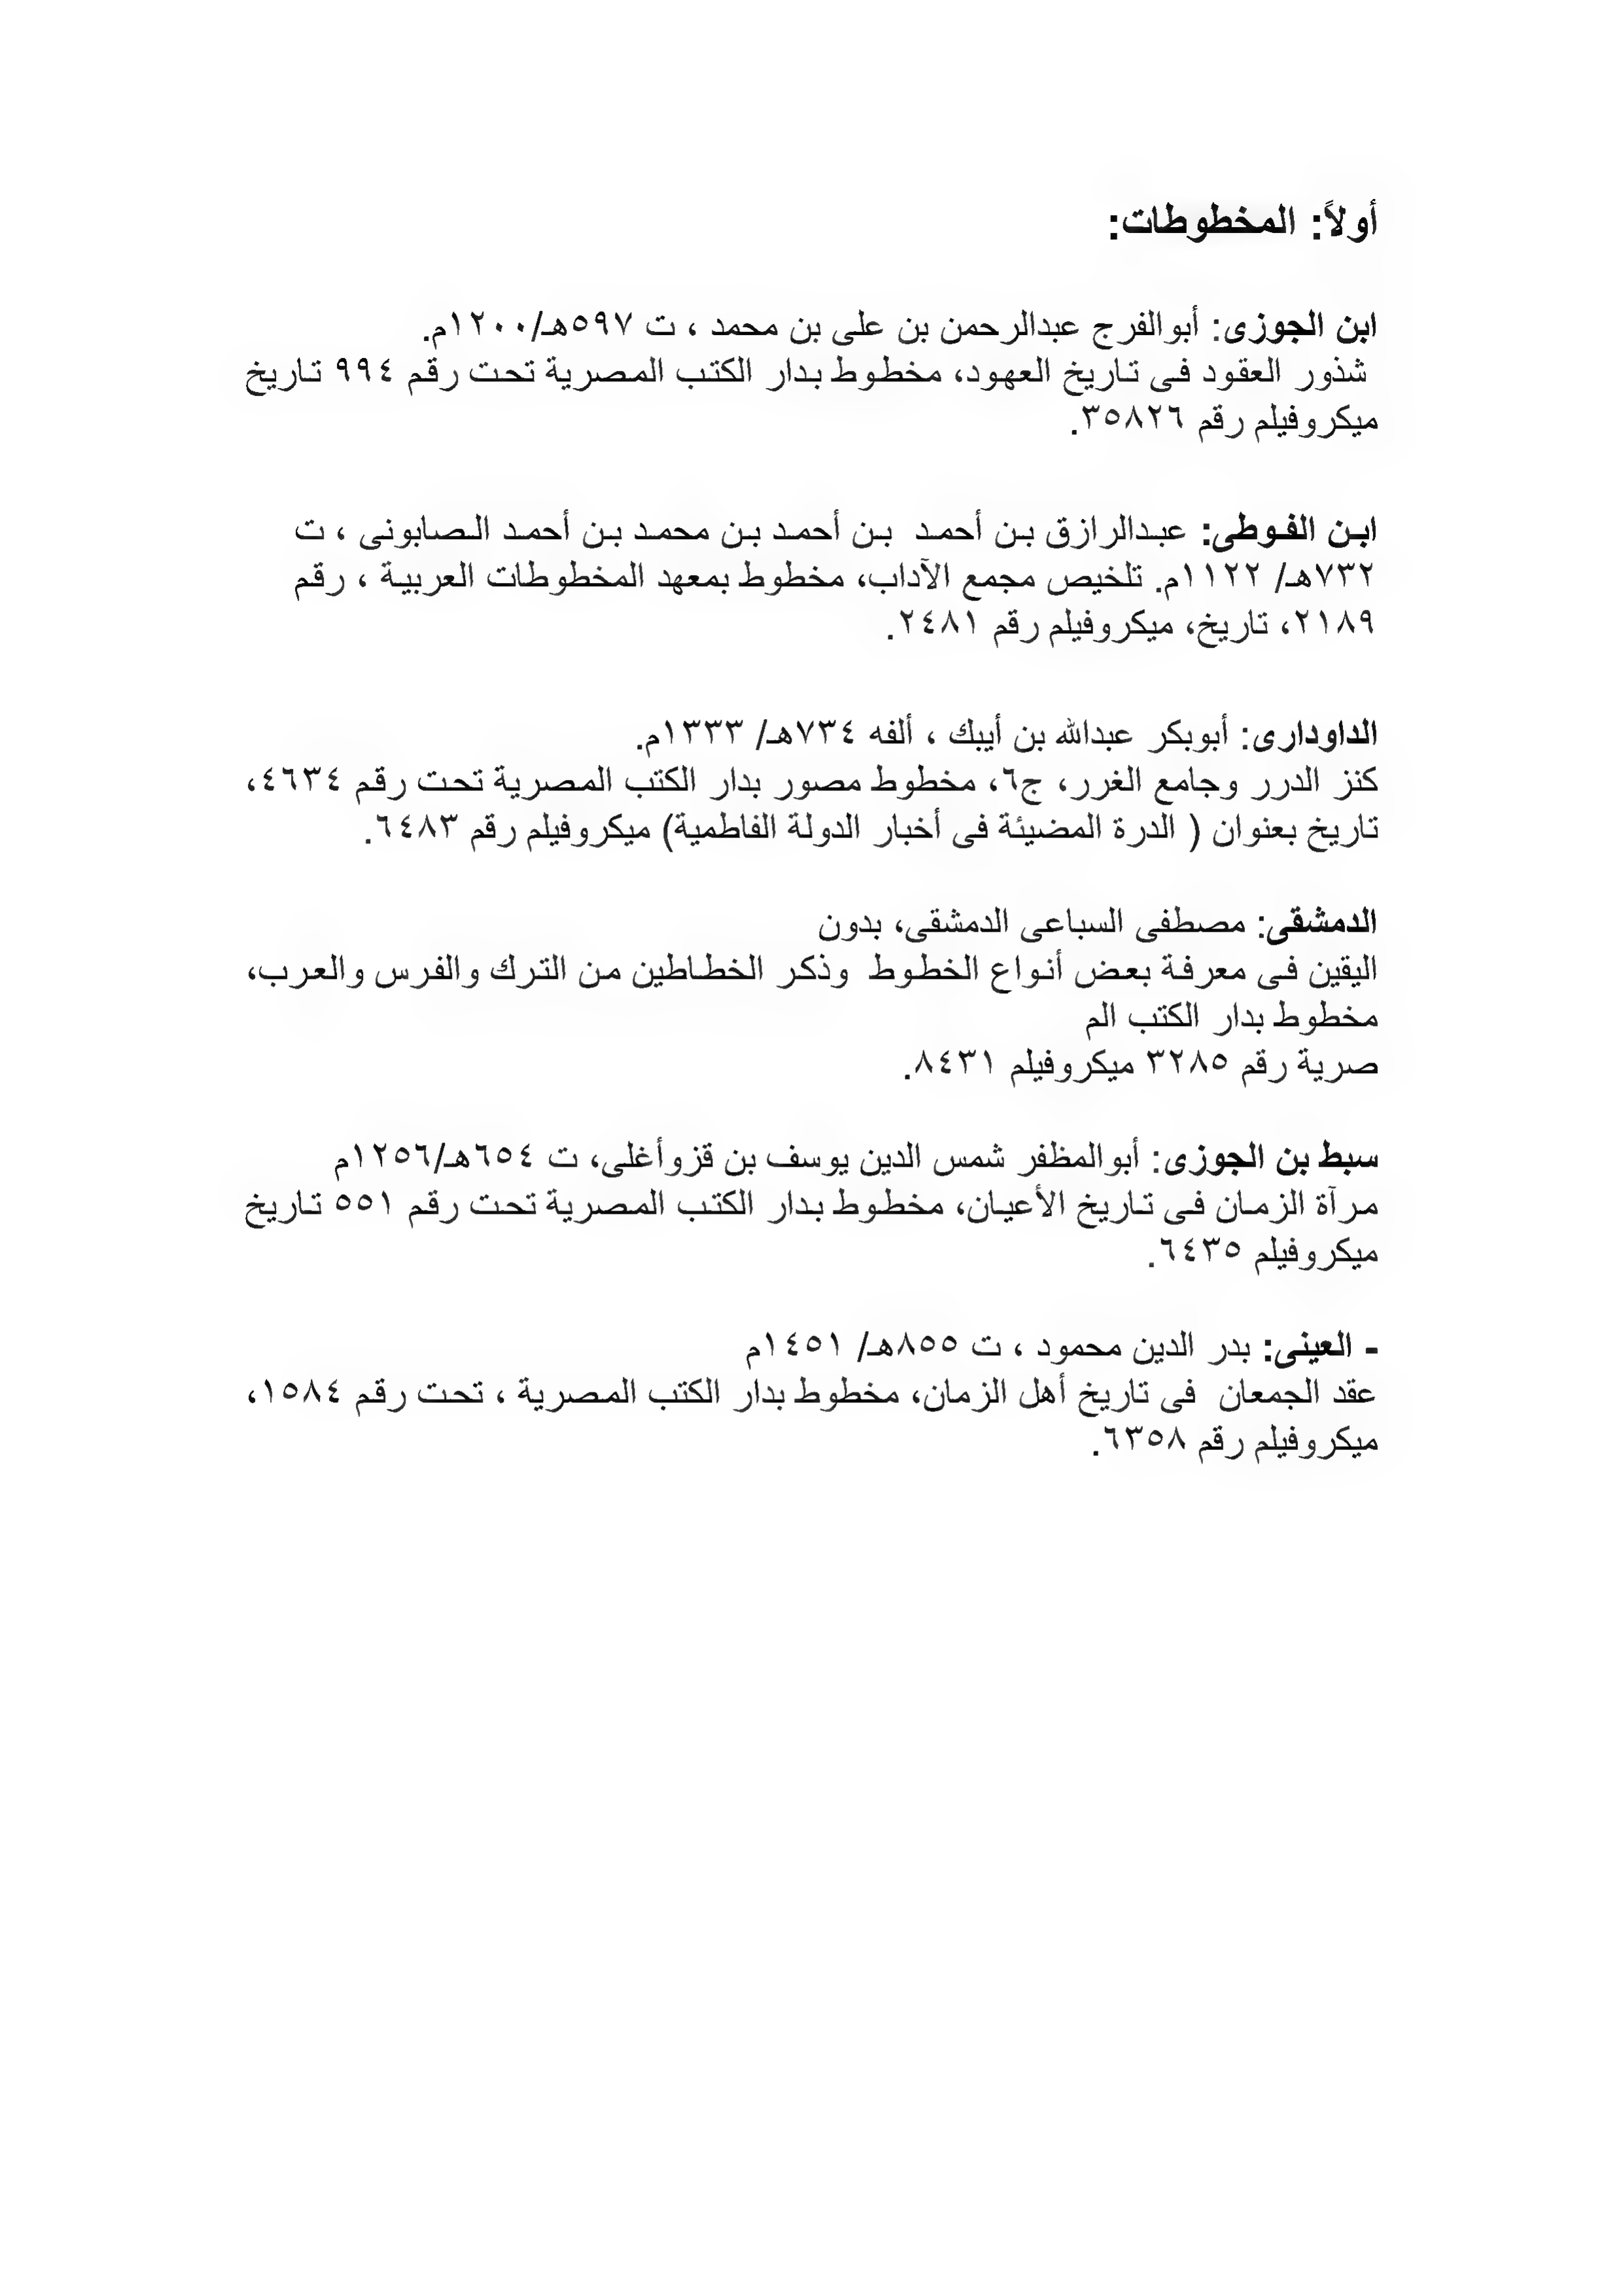 أولاً: المخطوطات:
ابن الجوزى: أبوالفرج عبدالرحمن بن على بن محمد ، ت ٥٩٧هـ/١٢٠٠م.
شذور العقود فى تاريخ العهود، مخطوط بدار الكتب المصرية تحت رقم ٩٩٤ تاريخ
ميكروفيلم رقم ٣٥٨٢٦.
ابن الفوطى: عبدالرازق بن أحمد بن أحمد بن محمد بن أحمد الصابونى ، ت
٧٣٢هـ/ ١١٢٢م. تلخيص مجمع الآداب، مخطوط بمعهد المخطوطات العربية ، رقم
٢١٨٩، تاريخ، ميكروفيلم رقم ٢٤٨١.
الداودارى: أبوبكر عبدالله بن أيبك ، ألفه ٧٣٤هـ/ ١٣٣٣م.
كنز الدرر وجامع الغرر، ج٦، مخطوط مصور بدار الكتب المصرية تحت رقم ٤٦٣٤،
تاريخ بعنوان ( الدرة المضيئة فى أخبار الدولة الفاطمية) ميكروفيلم رقم ٦٤٨٣.
الدمشقى: مصطفى السباعى الدمشقى، بدون
اليقين فى معرفة بعض أنواع الخطوط وذكر الخطاطين من الترك والفرس والعرب،
مخطوط بدار الكتب الم
صرية رقم ٣٢٨٥ ميكروفيلم ٨٤٣١.
سبط بن الجوزى: أبوالمظفر شمس الدين يوسف بن قزوأغلى، ت ٦٥٤هـ/١٢٥٦م
مرآة الزمان فى تاريخ الأعيان، مخطوط بدار الكتب المصرية تحت رقم ٥٥١ تاريخ
ميكروفيلم ٦٤٣٥.
- العينى: بدر الدين محمود ، ت ٨٥٥هـ/ ١٤٥١م
عقد الجمعان فى تاريخ أهل الزمان، مخطوط بدار الكتب المصرية ، تحت رقم ١٥٨٤،
ميكروفيلم رقم ٦٣٥٨.